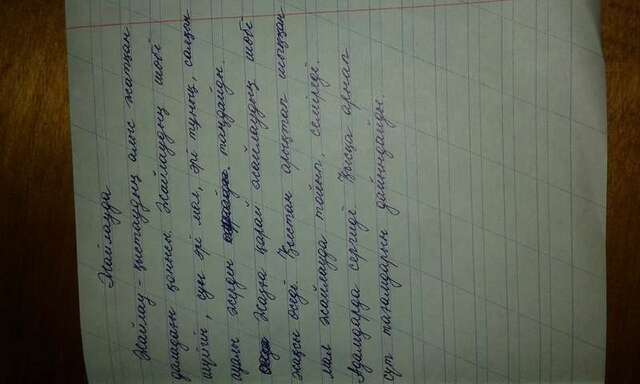 Жайлауда
Жайлау - қыстаудың алыс жатқан
даладағы қонысы. Жайлаудың шөбі
шүйгін, суы әрі мол, әрі тұнық, салқын
ауалы жерден таңдайды.
Жазға қарай жайлаудың шөбі
жақсы өседі. Қыстан арықтап шыққан
мал жайлауда тойып, семіреді.
Адамдарда сергиді. Қысқа арнап
сүт тағамдарын дайындайды.